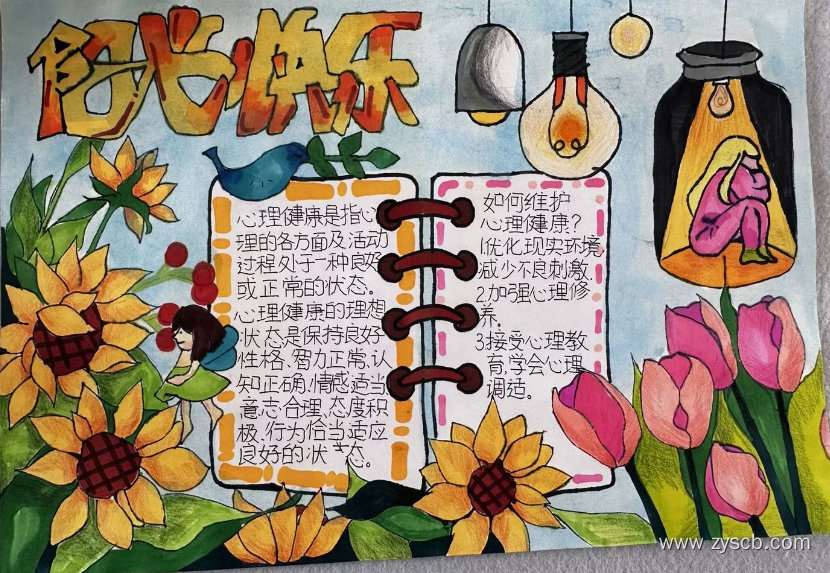 向长快乐
心理健康是指心
理的各方面及活动
过程处于一种良好
或正常的状态。
心理健康的理想
状态是保持良好
性格、智力正常、认
知正确、情感适当、
意志合理、态度积
极、行为恰当、适应
良好的状态。
如何维护
心理健康?
1.优化现实环境,
减少不良刺激
2.加强心理修
养。
3.接受心理教
育,学会心理
调适。
www.zyscb.com